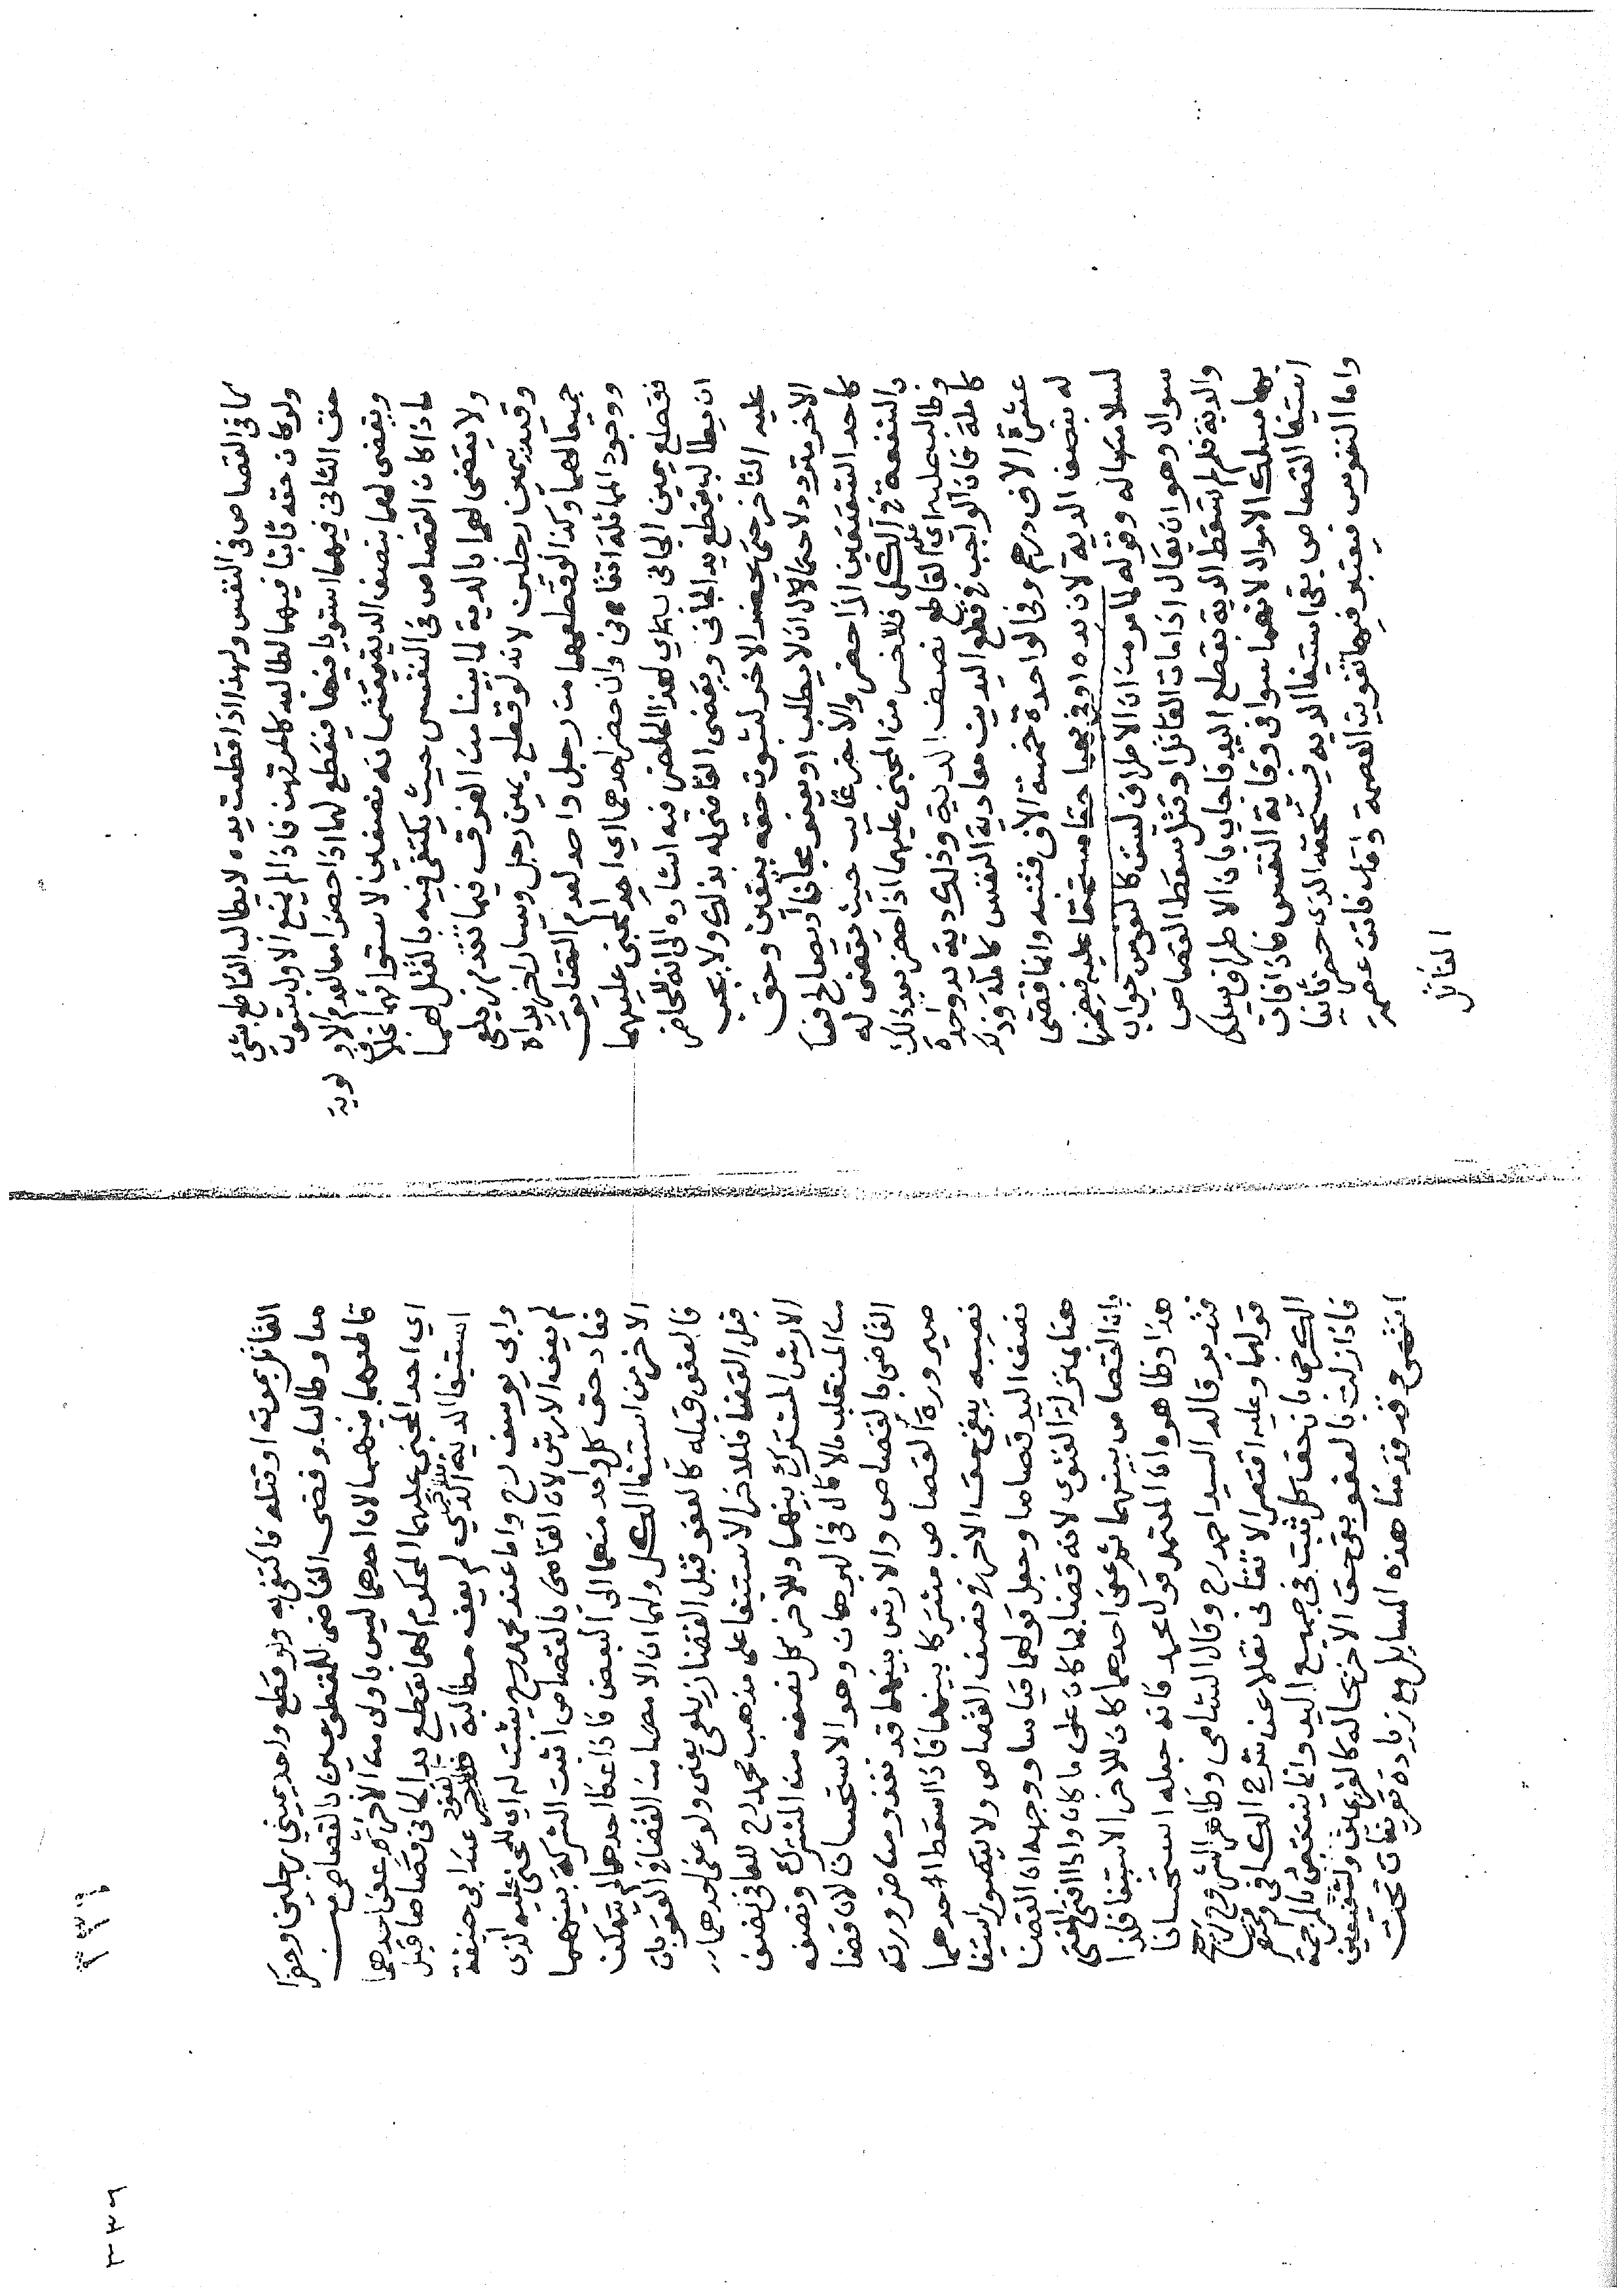 كما في القصاص في النفس ولهذا اذا قطعت يده لا يطالب القاطع بشئ
ولو كان حقه ثابتا فيهما لطالبه كالمرتهن فاذا لم يمنع الاول بثبوت
حق الثاني فيهما استويا فيها فيقطع لهما اذا حضرا معا لعدم الاولوية
ويقضى لهما بنصف الدية يقتسمانه نصفين لاستوائهما بخلاف
ما اذا كان القصاص في النفس حيث يكتفى فيه بالقتل لهما
ولا يقضى لهما بالدية لما بينا من الفرق فيما تقدم زيلعي
وقيد بيمين رجلين لانه لو قطع يمين رجل ويسار اخر يداه
جميعا لهما وكذا لو قطعهما من رجل واحد لعدم التضايق
ووجود المماثلة اتقاني وان حضر احدهما اي احد المجني عليهما
فقطع يمين الجاني لهذا الحاضر فيه اشارة الى انه للحاضر
ان يطالب بقطع يد الجاني ويقضي القاضي له بذلك ولا يجب
عليه التاخر حتى يحضر الاخر لثبوت حقه بيقين وحق
الاخر متردد لاحتمال ان لا يطلب او يعفو مجانا او يصالح
كاحد الشفيعين اذا حضر والاخر غايب حيث يقضى له
بالشفعة في الكل فللاخر من المجني عليهما اذا حضر بعد ذلك
وطالب عليه اي على القاطع نصف الدية وذلك دية يد واحدة
كاملة فان الواجب في قطع اليدين معا دية النفس كاملة وذلك
عشرة الاف درهم وفي الواحدة خمسة الاف فتنبه وانما قضى
له بنصف الدية لان يده اوفى بها حقا مستحقا عليه فيضمنها
لسلامتها له وقوله لما مر من ان الاطراف ليست كالنفوس جواب
سوال وهو ان يقال اذا مات القاتل او قتل سقط القصاص
والدية فلم لم تسقط الدية بقطع اليد فاجاب بان الاطراف يسلك
بها مسلك الاموال لانهما سوا في وقاية النفس فاذا فات
استيفا القصاص بقي استيفا الدية فيستحقه الذي حضر ثانيا
واما النفوس فيعتبر فيها تفويت العصمة وقد فاتت عصمة
القاتل
القاتل بموته او قتله فاكتفى به ولو قطع واحد يميني رجلين وحضرا
معا وطالبا وقضى القاضي للمقطوعين بالقصاص من
قاطعهما فيهما لان احدهما ليس باولى من الاخر ثم عفى احدهما
اي احد المجني عليهما المحكوم لهما بقطع يد الجاني قصاصا قبل
استيفا الدية الذي لم يعف مطالبة القود عند ابي حنيفة
وابي يوسف رح واما عند محمد رح يثبت له اي للمجني عليه الذي
لم يعف الارش لان القاضي بالقصاص اثبت الشركة بينهما
فعاد حق كل واحد منهما الى البعض فاذا عفا احدهما لم يتمكن
الاخر من استيفا الكل ولهما ان الامضا من القضا في العقوبات
فالعفو قبله كالعفو قبل القضا زيلعي يعني ولو عفى احدهما
قبل القضا فللاخر الاستيفا على مذهب محمد رح للعافي نصف
الارش المشترك بينهما وللاخر كل نصفه من المشترك ونصفه
من المنقلب مالا قال في البرهان وهو الاستحسان لان قضا
القاضي بالقصاص والارش بينهما قد نفذ ومن ضرورته
صيرورة القصاص مشتركا بينهما فاذا اسقط احدهما
نصيبه يبقى حق الاخر في نصف القصاص ولا يتصور استيفا
نصف اليد قصاصا وجعل قولهما قياسا ووجهه ان القضا
هنا بمنزلة الفتوى لانه قضا بما كان على ما كان واذا افتى المفتي
بان القصاص بينهما ثم عفى احدهما كان للاخر الاستيفا فكذا
هذا وظاهره ان المعتمد قول محمد فانه جعله استحسانا
فتدبر قاله السيد احمد رح وقال الشامي وظاهر الشروح ترجيح
قولهما وعليه اقتصر الاتقاني نقلا عن شرح الكافي ومختصر
الكرخي بان حق كل ثبت في جميع اليد وانما ينتقص بالمزاحمة
فاذا زالت بالعفو بقي حق الاخر بحاله كالغريمين والشفيعين
انتهى فقد قدمنا هذه المسايل مع زيادة تفريعات تحت
٣٣٦